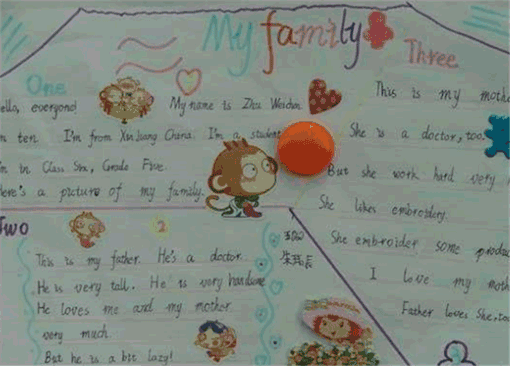 My family
One
ello, everyone! My name is Zhu Weidon
ten. I'm from Xin Jiang China. I'm a student
m in Class Six, Grade Five.
ere's a picture of my family.
Two
2
This is my father. He's a doctor.
He is very tall. He is very handsome
He loves me and my mother
very much.
But he is a bit lazy!
Three
This is my mothe
She is a doctor, too.
But she work hard very
She likes embroidery.
She embroider some produc
I love my moth
Father loves she, to